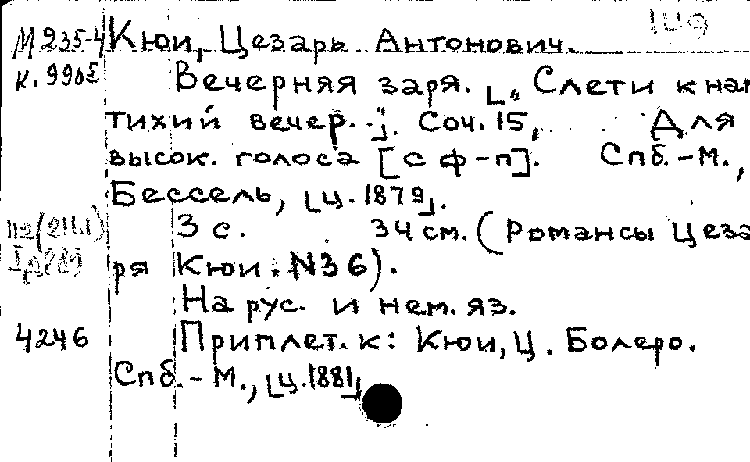 М 235-4 Кюи, Цезарь Антонович.
К. 990 Вечерняя заря. [„Слети к нам
тихий вечер..."]. Соч. 15, Для
высок. голоса [с ф-п]. Спб.-М.,
Бессель, [ц. 1879].
3 с. 34 см. (Романсы Цеза
ря Кюи. N36).
На рус. и нем. яз.
4246 Приплет. к: Кюи, Ц. Болеро.
Спб.-М., [ц. 1881]